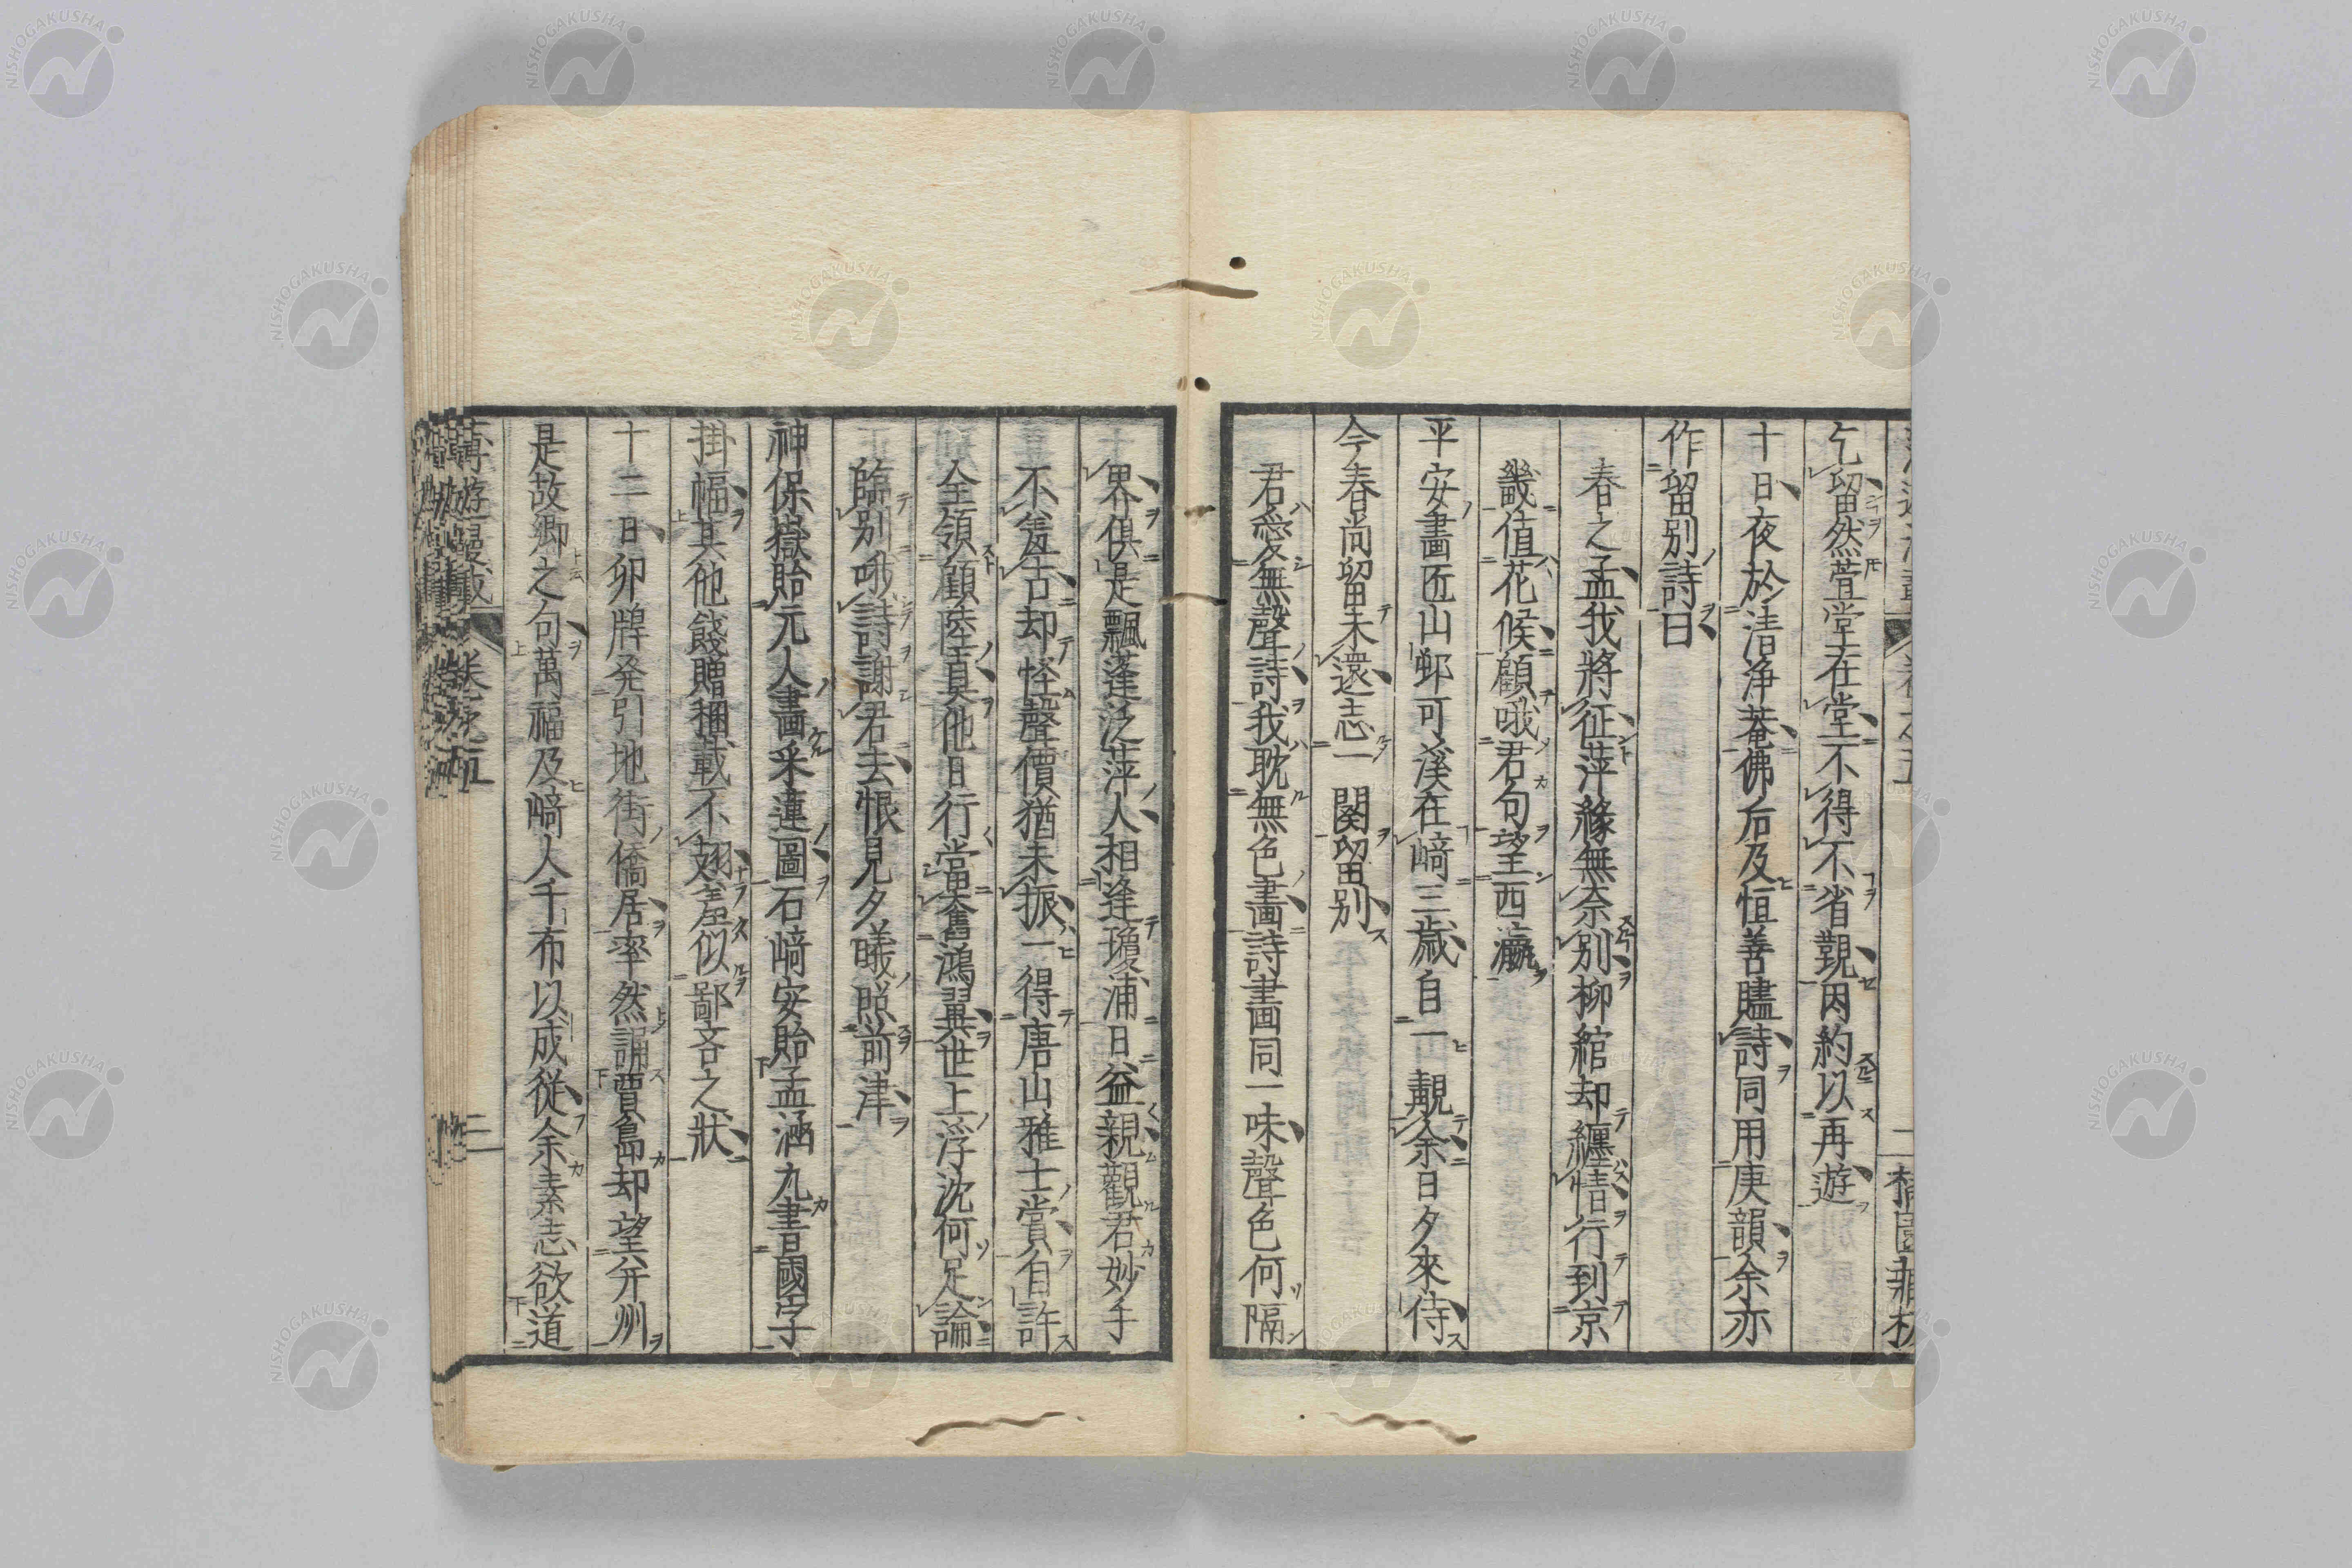 乞留然萱堂在堂不得不省覲因約以再遊
十日夜於清浄菴佛后及恒善贐詩同用庚韻余亦
作留別詩曰
春之孟我將征萍緣無奈別柳綰却纏情行到京
畿值花候顧哦君句望西瀛
平安畫匠山邨可溪在﨑三歳自一面覿余日夕來侍
今春尚留未還志一関留別
君愛無聲詩我耽無色畫詩畫同一味聲色何隔
界俱是飄蓬泛萍人相逢瓊浦日益親觀君妙手
不雋古却怪聲價猶未振一得唐山雅士賞自許
全領顧陸真他日行當奮鴻翼世上浮沈何足論
臨別哦詩謝君去恨見夕曦照前津
神保嶽貽元人畫采蓮圖石﨑安貽孟涵九書國字
掛幅其他餞贈稛載不翅差似鄙吝之狀
十二日卯牌発引地街僑居率然誦賈島却望并州
是故郷之句萬福及﨑人千布以成従余素志欲道
再遊漫載
巻之五
二
NISHOGAKUSHA